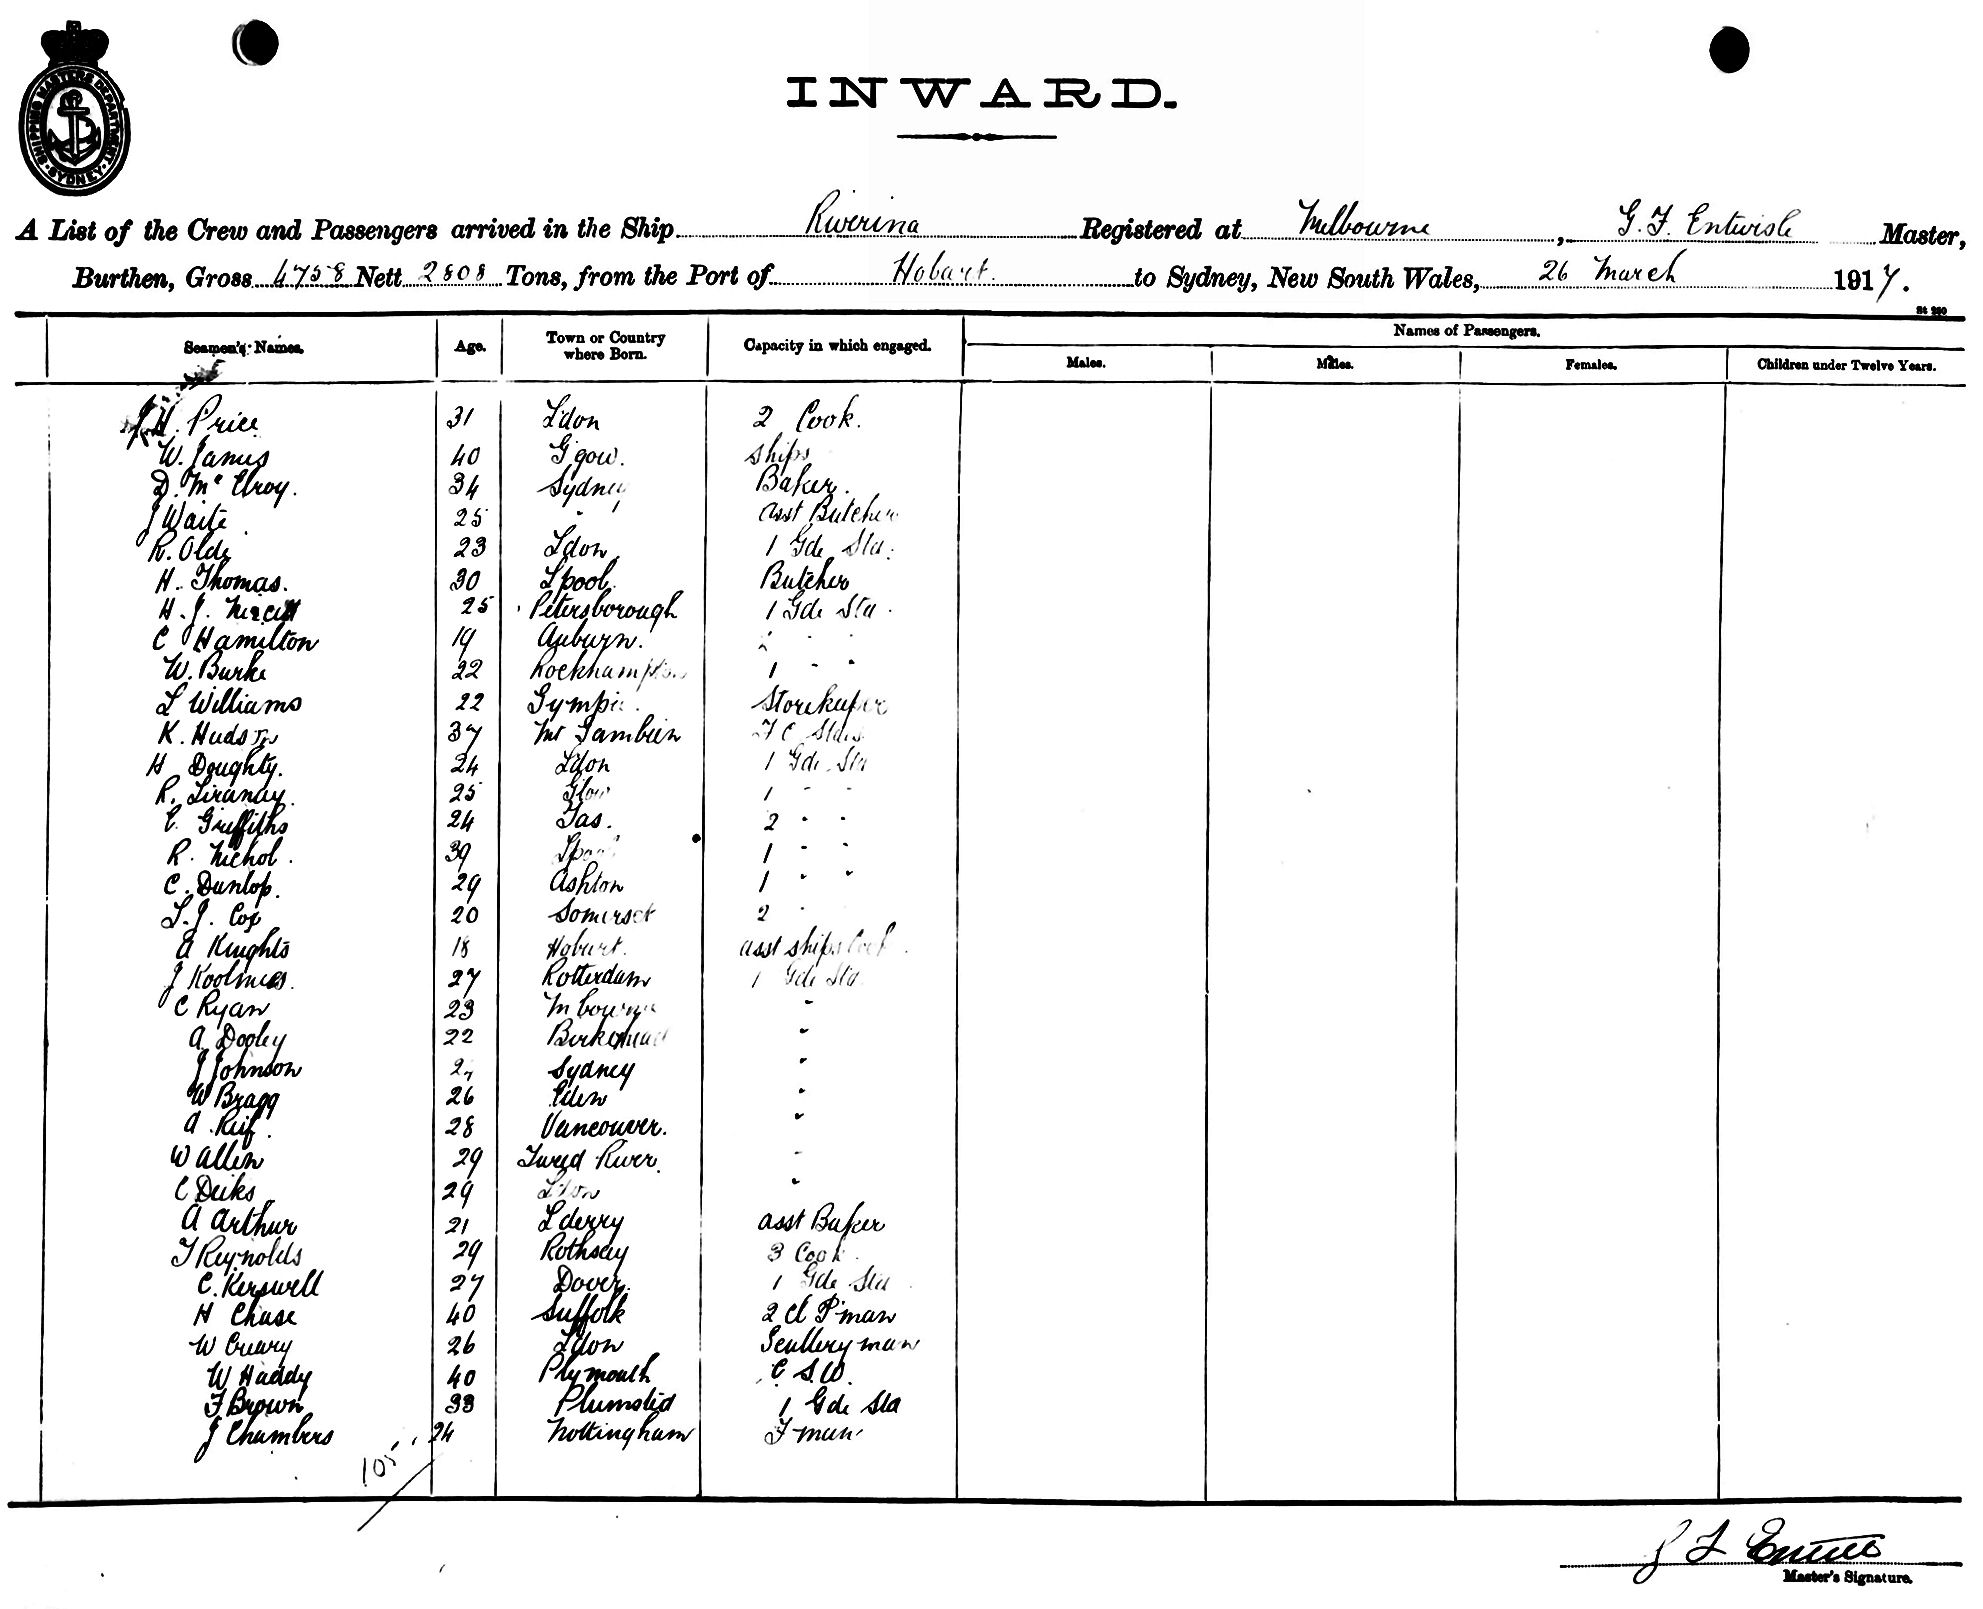 SHIPPING MASTERS DEPARTMENT
SYDNEY
INWARD.
A List of the Crew and Passengers arrived in the Ship Riverina Registered at Melbourne, G. F. Entwisle Master,
Burthen, Gross 4758 Nett 2808 Tons, from the Port of Hobart. to Sydney, New South Wales, 26 March 1917.
St 230
Names of Passengers.
Seamen's Names. Age. Town or Country where Born. Capacity in which engaged. Males. Males. Females. Children under Twelve Years.
H. Price 31 L'don 2 Cook.
W. James 40 G'gow. Ships
D. McElroy. 34 Sydney Baker.
J Waite 25 " asst Butcher
R. Olde 23 L'don 1 Gde Std.
H. Thomas. 30 L'pool. Butcher
H. J. 25 Petersborough 1 Gde Std.
C Hamilton 19 Auburn. 2 " "
W. Burke 22 Rockhampton 1 " "
L Williams 22 Gympie. Storekeeper
K. Hudson 37 Mt Gambier F C Stdss
H Doughty. 24 L'don 1 Gde Std
R. 25 Glow 1 " "
E. Griffiths 24 Tas. 2 " "
R. Nichol. 39 L'pool 1 " "
C. Dunlop. 29 Ashton 1 " "
L. J. Cox 20 Somerset 2 "
A Knights 18 Hobart. asst ships Cook.
J Koolmees. 27 Rotterdam 1 Gde Std.
C Ryan 23 M'bourne "
A Dooley 22 Birkenhead "
J Johnson Sydney "
W Bragg 26 Eden "
A. Reif. 28 Vancouver. "
W Allen 29 Tweed River. "
C Deeks 29 L'don "
A Arthur 21 L'derry asst Baker
T Reynolds 29 Rothsay 3 Cook.
C. Kerswell 27 Dover. 1 Gde Std.
H Chase 40 Suffolk 2 Cl P'man
W Creary 26 L'don Scullery man
W Haddy 40 Plymouth C. S. W.
F Brown 33 Plumsted 1 Gde Std
J Chambers 24 Nottingham F'man
105
G F Entwisle
Master's Signature.